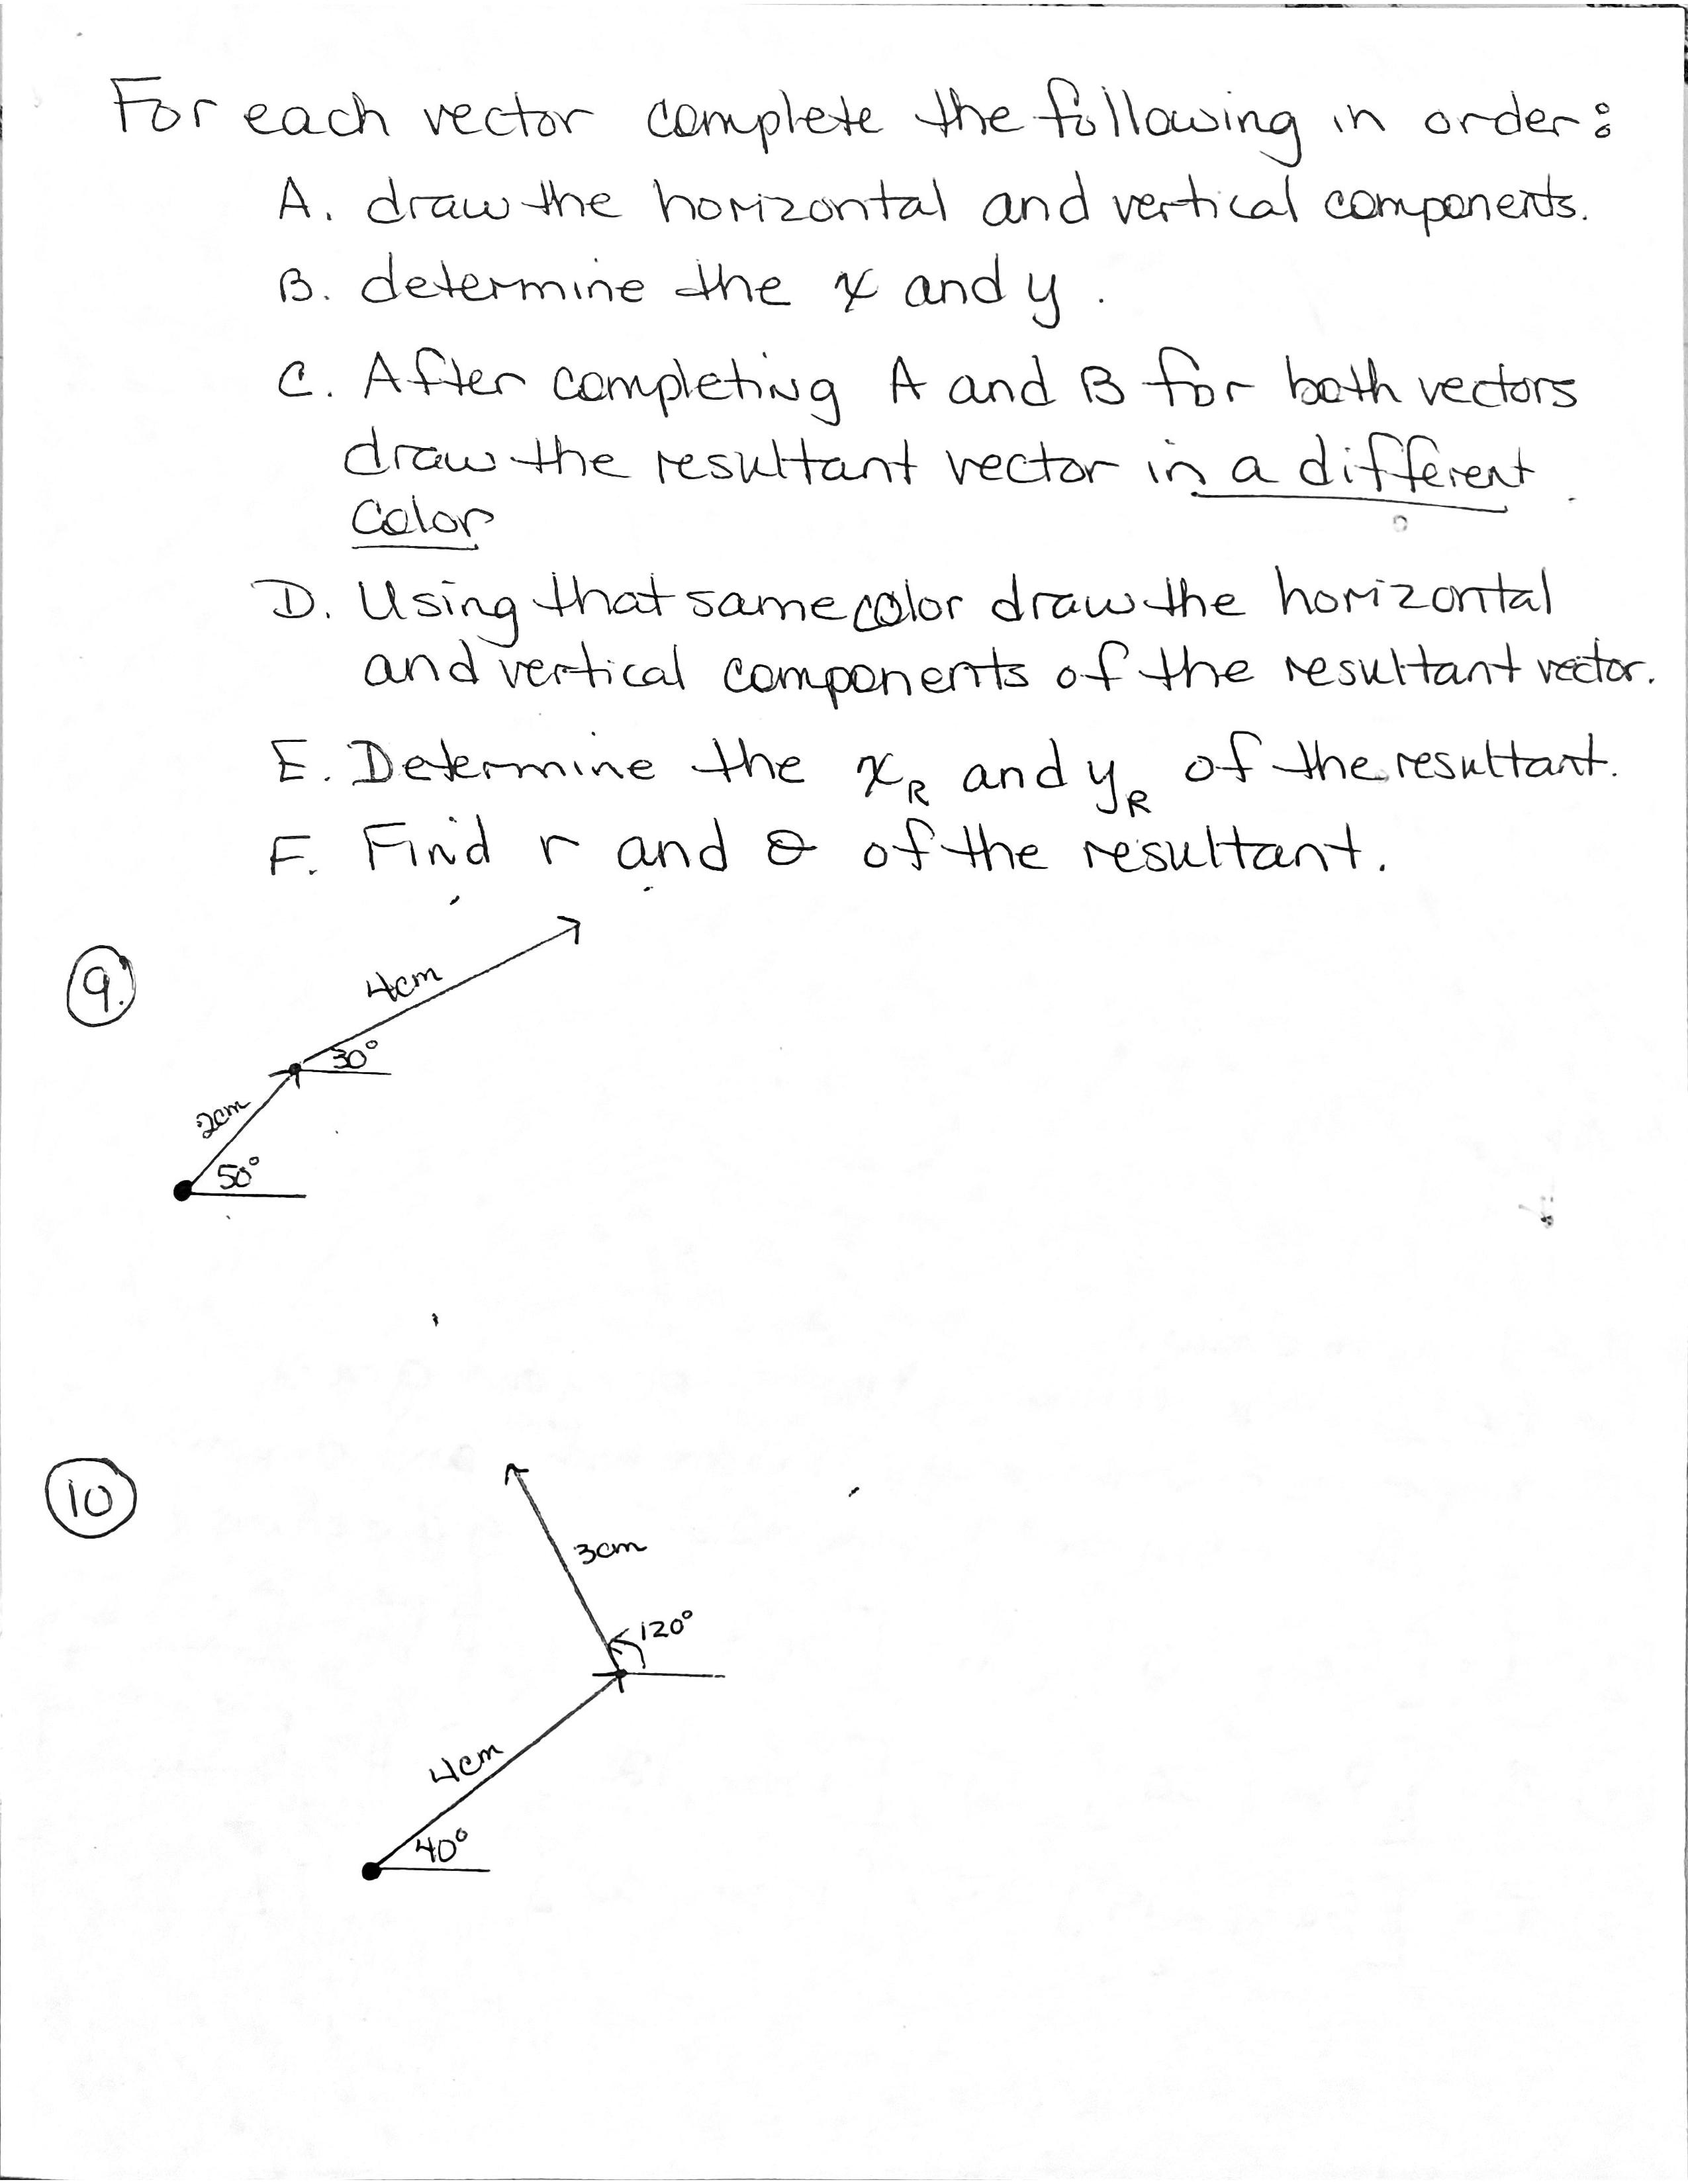 For each vector complete the following in order:
A. draw the horizontal and vertical components.
B. determine the x and y.
C. After completing A and B for both vectors
draw the resultant vector in a different
color
D. Using that same color draw the horizontal
and vertical components of the resultant vector.
E. Determine the xR and yR of the resultant.
F. Find r and θ of the resultant.
9.
4cm
30°
2cm
50°
10
3cm
120°
4cm
40°